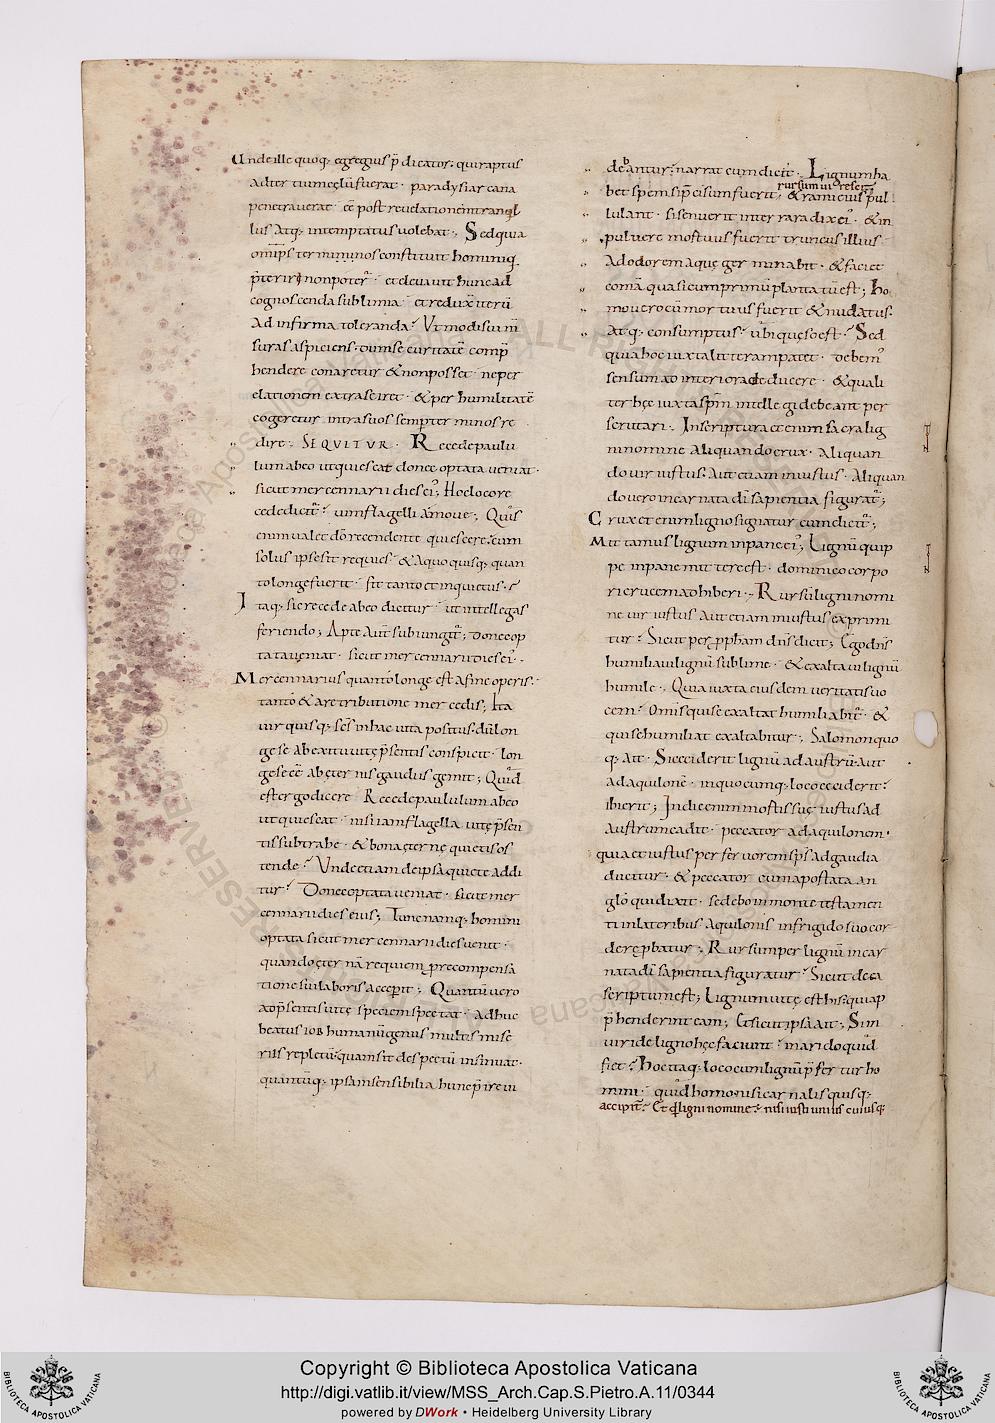 Unde ille quoq; egregius p̄dicator; qui raptus
ad tertium cęlū fuerat · paradysi arcana
penetraverat · cē post revelationem tranqͥl
lus atq; intemptatus volebat ·, Sed quia
om̄ps terminum nos constituit hominiq;
p̄teriri non poterᷓ · et elevavit hunc ad
cognoscenda sublimia · et reduxit iterū
ad infirma toleranda; Ut modi sui m̄
suras aspiciens · dum securitatē comp̄
hendere conaretur & non posset · ne per
elationem extra se iret · & per humilitatē
cogeretur intra suos semper terminos re
dire ·, SEQUITUR · Recede paulu
lum ab eo ut quiescat donec optata veniat ·
sicut mercennarii dies eiꝰ; Hoc loco re
cede dictūᷓ · vim flagelli amove; Quis
enim valet dō recedente quiescere · cum
solus ipse sit requies · & a quo quisq; quan
to longe fuerit · sit tanto et inquietus ·
Itaq; sic recede ab eo dicitur · ut intellegas
feriendo; Apte aut̄ subiungitᷓ; donec op
tata veniat · sicut mercennarii dies eiꝰ ·
Mercennarius quanto longe est a fine operis ·
tanto & a retributione mercedis; Ita
vir quisq; scs in hac vita positus · dū lon
ge se ab exitu vitę p̄sentis conspicit · lon
ge se cē ab ęternis gaudiis gemit; Quid
est ergo dicere Recede paululum ab eo
ut quiescat · nisi iam flagella vitę p̄sen
tis subtrahe · & bona ęternę quietis os
tende · Unde etiam de ipsa quiete addi
tur · Donec optata veniat · sicut mer
cennarii dies eius; Tunc namq; homini
optata sicut mercennarii dies venit ·
quando ęternā requiem pre compensā
tione sui laboris acceperit; Quantū vero
ad p̄sentis vitę speciem spectat · adhuc
beatus iob humanū genus multis mise
riis repletū · quam sit despectū insinuat ·
quantūq; ipsa insensibilia hunc p̄ire vi
debantur · narrat cum dicit ·, Lignum ha
rursum virescit
bet spem si p̄cisum fuerit, & rami eius pul
lulant · si senuerit in terra radix eiꝰ · & in
pulvere mortuus fuerit truncus illius ·
Ad odorem aquę germinabit · & faciet
comā quasi cum primū plantatū est; Ho
mo vero cū mortuus fuerit & nudatus ·
atq; consumptus · ubi quęso est · Sed
quia hoc iuxta litteram patet · debemꝰ
sensum ad interiora deducere · & quali
ter hęc iuxta spm̄ intellegi debeant per
scrutari ·, In scriptura etenim sacra lig
ni nomine aliquando crux · aliquan
do vir iustus · aut etiam iniustus · aliquan
do vero incarnata dī sapientia figuratᷓ;
Crux etenim ligno signatur cum dicitᷓ;
Mittamus lignum in pane eiꝰ; Lignū quip
pe in pane mittere est · dominico corpo
ri crucem adhiberi ·, Rursū ligni nomi
ne vir iustus aut etiam iniustus exprimi
tur · Sicut per pphām dn̄s dicit; Ego dn̄s
humiliavi lignū sublime · & exaltavi lignū
humile ·, Quia iuxta eiusdem veritatis vo
cem · Omis qui se exaltat humiliabitᷓ · &
qui se humiliat exaltabitur ·, Salomon quo
q; ait · Si ceciderit lignū ad austrū · aut
ad aquilonē · in quocumq; loco ceciderit ·
ibi erit; In die enim mortis suę iustus ad
austrum cadit · peccator ad aquilonem ·
quia et iustus per fervorem sp̄s ad gaudia
ducitur · & peccator cum apostata an
glō qui dixit · sedebo in monte testamen
ti in lateribus aquilonis in frigido suo cor
de repbatur ·, Rursum per lignū incar
nata dī sapientia figuratur · Sicut de ea
scriptum est; Lignum vitę est his · qui ap
p̄henderint eam; Et sicut ipsā ait ·, Si in
viride ligno hęc faciunt · in arido quid
fiet · Hoc itaq; loco cum lignū p̄fertur ho
mini · quid homo nisi carnalis quisq;
accipitᷓ · Et qͥ ligni nomine · nisi iusti unius cuiusq;
Copyright © Biblioteca Apostolica Vaticana
http://digi.vatlib.it/view/MSS_Arch.Cap.S.Pietro.A.11/0344
powered by DWork • Heidelberg University Library
BIBLIOTECA APOSTOLICA VATICANA
BIBLIOTECA APOSTOLICA VATICANA